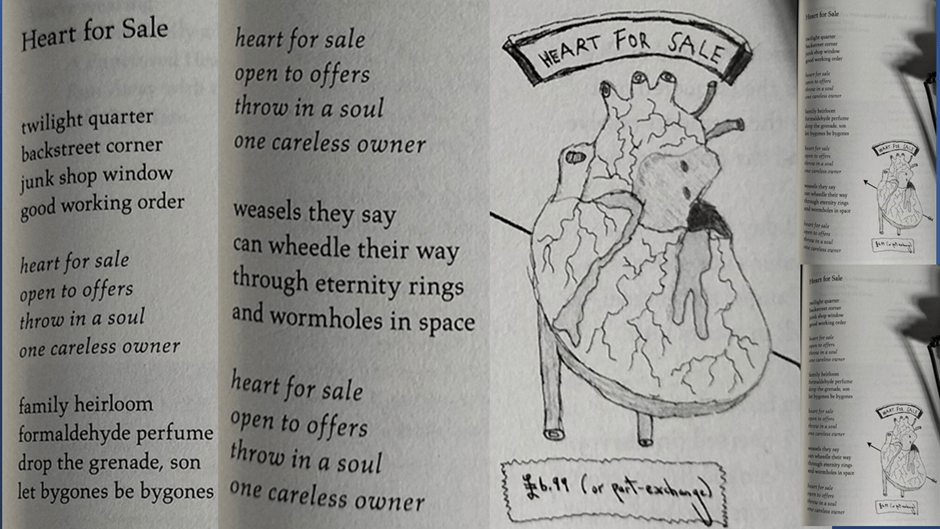 Heart for Sale
twilight quarter
backstreet corner
junk shop window
good working order
heart for sale
open to offers
throw in a soul
one careless owner
family heirloom
formaldehyde perfume
drop the grenade, son
let bygones be bygones
heart for sale
open to offers
throw in a soul
one careless owner
weasels they say
can wheedle their way
through eternity rings
and wormholes in space
heart for sale
open to offers
throw in a soul
one careless owner
HEART FOR SALE
£6.99 (or part-exchange)
Heart for Sale
twilight quarter
backstreet corner
junk shop window
good working order
heart for sale
open to offers
throw in a soul
one careless owner
family heirloom
formaldehyde perfume
drop the grenade, son
let bygones be bygones
heart for sale
open to offers
throw in a soul
one careless owner
weasels they say
can wheedle their way
through eternity rings
and wormholes in space
heart for sale
open to offers
throw in a soul
one careless owner
HEART FOR SALE
£6.99 (or part-exchange)
Heart for Sale
twilight quarter
backstreet corner
junk shop window
good working order
heart for sale
open to offers
throw in a soul
one careless owner
family heirloom
formaldehyde perfume
drop the grenade, son
let bygones be bygones
heart for sale
open to offers
throw in a soul
one careless owner
weasels they say
can wheedle their way
through eternity rings
and wormholes in space
heart for sale
open to offers
throw in a soul
one careless owner
HEART FOR SALE
£6.99 (or part-exchange)